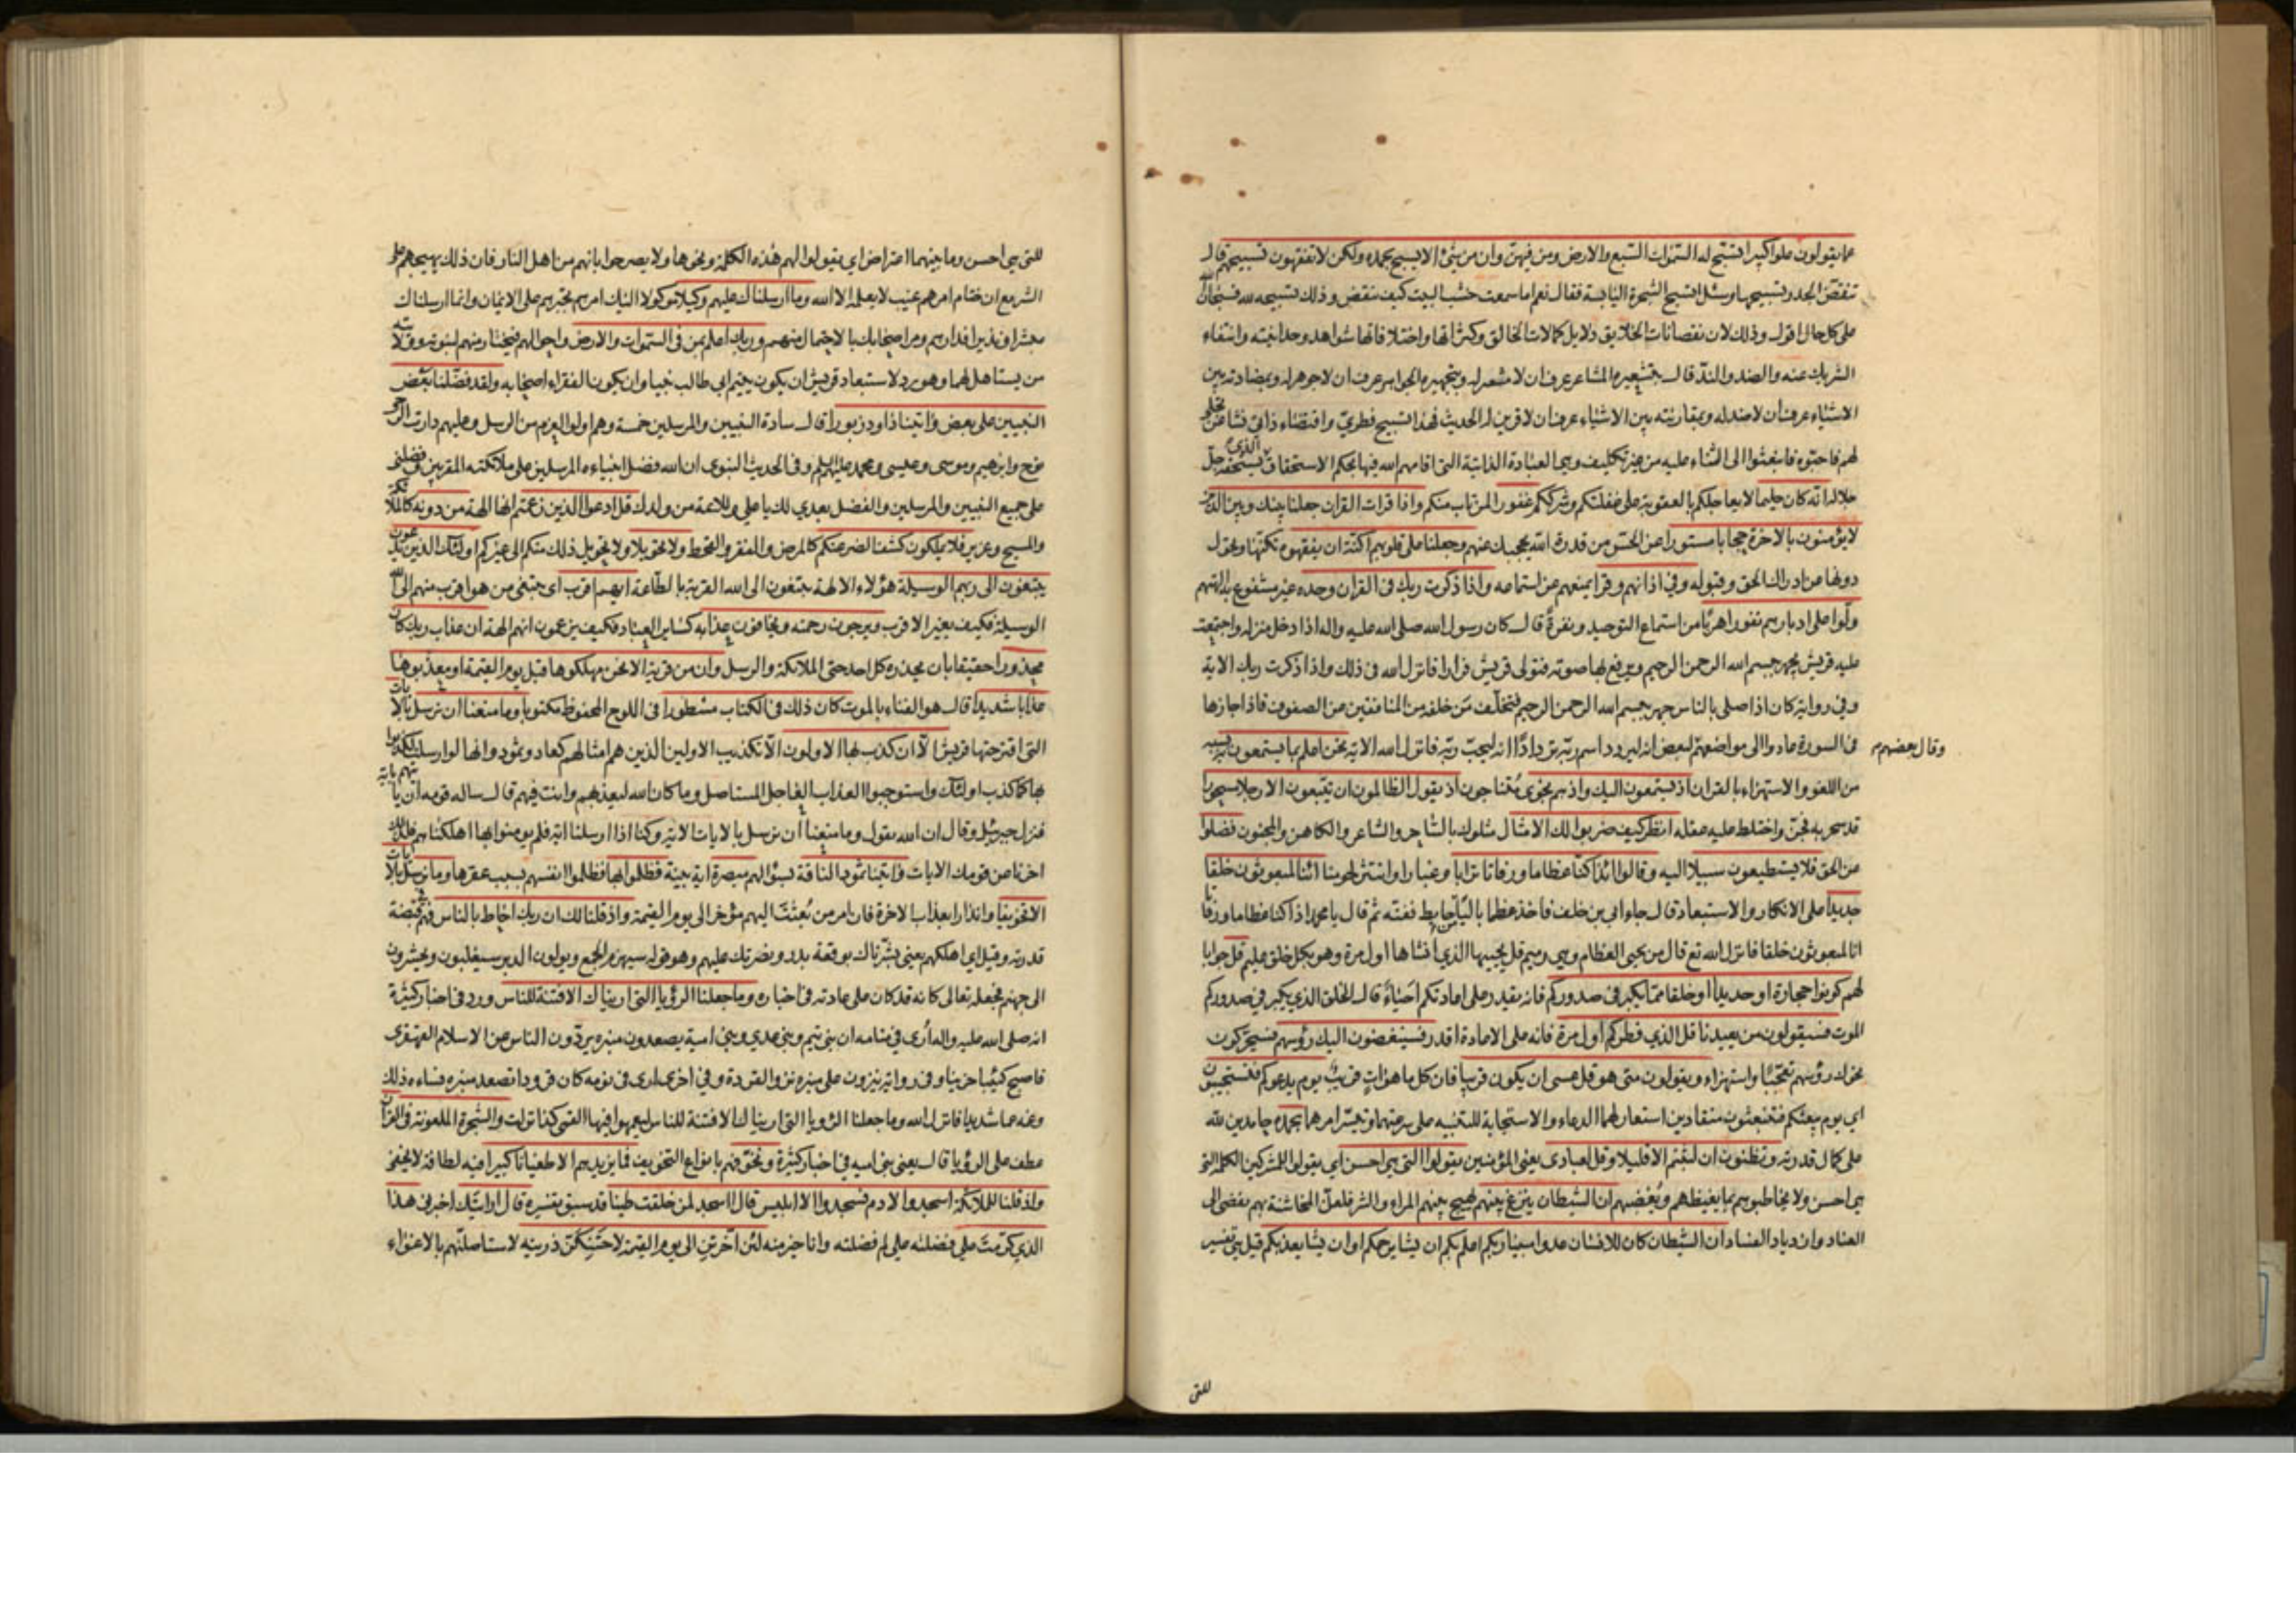 عما يقولون علوا كبيرا تسبح له السموات السبع والارض ومن فيهن وان من شئ الا يسبح بحمده ولكن لا تفقهون تسبيحهم قال
تنقض الجدر تسبيحها وسئل اتسبح الشجرة اليابسة فقال نعم اما سمعت خشب البيت كيف ينقض وذلك تسبيحه لله فسبحان الله
على كل حال اقول وذلك لان نقصانات الخلايق دلايل كمالات الخالق وكثراتها واختلافاتها شواهد وحدانيته وانتفاء
الشريك عنه والضد والند قال بتشعيره المشاعر عرف ان لا مشعر له وبتجهيره الجواهر عرف ان لا جوهر له وبمضادته بين
الاشياء عرف ان لا ضد له وبمقارنته بين الاشياء عرف ان لا قرين له الحديث فهذا تسبيح فطري واقتضاء ذاتي نشأ عن تجلى
لهم فاحبوه فابتعثوا الى الثناء عليه من غير تكليف وهي العبادة الذاتية التى اقامهم الله فيها بحكم الاستحقاق الذى يستحقه جل
جلاله انه كان حليما لا يعاجلكم بالعقوبة على غفلتكم وشرككم غفورا لمن تاب منكم واذا قرات القران جعلنا بينك وبين الذين
لا يؤمنون بالاخرة حجابا مستورا عن الحس من قدرة الله يحجبك عنهم وجعلنا على قلوبهم اكنة ان يفقهوه تكنها وتحول
دونها من ادراك الحق وقبوله وفي اذانهم وقرا يمنعهم عن استماعه واذا ذكرت ربك فى القران وحده غير مشفوع به الهتهم
ولوا على ادبارهم نفورا هربا من استماع التوحيد ونفرة قال كان رسول الله صلى الله عليه واله اذا دخل منزله واجتمعت
عليه قريش يجهر ببسم الله الرحمن الرحيم ويرفع بها صوته فتولى قريش فرارا فانزل الله فى ذلك واذا ذكرت ربك الاية
وفي رواية كان اذا صلى بالناس جهر ببسم الله الرحمن الرحيم فتخلف من خلفه من المنافقين عن الصفوف فاذا جازها
فى السورة عادوا الى مواضعهم لبعض انه ليردد اسم ربه تردادا انه ليحب ربه فانزل الله الاية نحن اعلم بما يستمعون به بسببه
وقال بعضهم
من اللغو والاستهزاء بالقران اذ يستمعون اليك واذ هم نجوى متناجون اذ يقول الظالمون ان تتبعون الا رجلا مسحورا
قد سحر به فجن واختلط عليه عقله انظر كيف ضربوا لك الامثال مثلوك بالساحر والشاعر والكاهن والمجنون فضلوا
عن الحق فلا يستطيعون سبيلا اليه وقالوا ائذا كنا عظاما ورفاتا ترابا وغبارا وانتثر لحومنا ائنا لمبعوثون خلقا
جديدا على الانكار والاستبعاد قال جاء ابي بن خلف فاخذ عظما باليا من حايط ففته ثم قال يا محمد اذا كنا عظاما ورفاتا
ائنا لمبعوثون خلقا فانزل الله تع قال من يحيى العظام وهي رميم قل يحييها الذي انشاها اول مرة وهو بكل خلق عليم قل جوابا
لهم كونوا حجارة او حديدا او خلقا مما يكبر فى صدوركم فانه يقدر على اعادتكم احياء قال الخلق الذي يكبر في صدوركم
الموت فسيقولون من يعيدنا قل الذي فطركم اول مرة فانه على الاعادة اقدر فسينغضون اليك رؤسهم فسيحركون
نحوك رؤسهم تعجبا واستهزاء ويقولون متى هو قل عسى ان يكون قريبا فان كل ما هو ات قريب يوم يدعوكم فتستجيبون
اي يوم يبعثكم فتنبعثون منقادين استعار لهما الدعاء والاستجابة للتنبيه على سرعتهما وتيسر امرهما بحمده حامدين لله
على كمال قدرته وتظنون ان لبثتم الا قليلا وقل لعبادى يعني المؤمنين يقولوا التي هي احسن اي يقولوا للمشركين الكلمة التي
هي احسن ولا يخاطبوهم بما يغيظهم ويغضبهم ان الشيطان ينزغ بينهم يهيج بينهم المراء والشر فلعل المخاشنة بهم يفضى الى
العناد وازدياد الفساد ان الشيطان كان للانسان عدوا مبينا ربكم اعلم بكم ان يشا يرحمكم او ان يشا يعذبكم قيل هي تفسير
للتى
للتى هي احسن وما بينهما اعتراض اي يقولوا لهم هذه الكلمة ونحوها ولا يصرحوا بانهم من اهل النار فان ذلك يهيجهم على
الشر مع ان ختام امرهم غيب لا يعلمه الا الله وما ارسلناك عليهم وكيلا موكولا اليك امرهم تجبرهم على الايمان وانما ارسلناك
مبشرا ونذيرا فدارهم ومر اصحابك بالاحتمال منهم وربك اعلم بمن فى السموات والارض وباحوالهم فيختار منهم لنبوته وولايته
من يستاهل لهما وهو رد لاستبعاد قريش ان يكون يتيم ابي طالب نبيا وان يكون الفقراء اصحابه ولقد فضلنا بعض
النبيين على بعض واتينا داود زبورا قال سادة النبيين والمرسلين خمسة وهم اولوا العزم من الرسل وعليهم دارت الرحى
نوح وابرهيم وموسى وعيسى ومحمد عليهم السلم وفى الحديث النبوى ان الله فضل انبياءه المرسلين على ملائكته المقربين وفضلنى
على جميع النبيين والمرسلين والفضل بعدي لك يا على وللائمة من ولدك قل ادعوا الذين زعمتم انها الهة من دونه كالملائكة
والمسيح وعزير فلا يملكون كشف الضر عنكم كالمرض والفقر والقحط ولا تحويلا ولا تحويل ذلك منكم الى غيركم اولئك الذين يدعون
يبتغون الى ربهم الوسيلة هؤلاء الالهة يبتغون الى الله القربة بالطاعة ايهم اقرب اى يبتغى من هو اقرب منهم الى الله
الوسيلة فكيف بغير الاقرب ويرجون رحمته ويخافون عذابه كساير العباد فكيف يزعمون انهم الهة ان عذاب ربك كان
محذورا حقيقا بان يحذره كل احد حتى الملائكة والرسل وان من قرية الا نحن مهلكوها قبل يوم القيمة او معذبوها
عذابا شديدا قال هو الفناء بالموت كان ذلك فى الكتاب مسطورا فى اللوح المحفوظ مكتوبا وما منعنا ان نرسل بالايات
التى اقترحتها قريش الا ان كذب بها الاولون الا تكذيب الاولين الذين هم امثالهم كعاد وثمود وانها لو ارسلت لكذبوا
بها كما كذب اولئك واستوجبوا العذاب العاجل المستاصل وما كان الله ليعذبهم وانت فيهم قال ساله قومه ان ياتيهم باية
فنزل جبرئيل وقال ان الله يقول وما منعنا ان نرسل بالايات الاية وكنا اذا ارسلنا اية فلم يومنوا بها اهلكناهم فلذلك
اخرنا عن قومك الايات واتينا ثمود الناقة بسؤالهم مبصرة اية بينة فظلموا بها فظلموا انفسهم بسبب عقرها وما نرسل بالايات
الا تخويفا وانذارا بعذاب الاخرة فان امر من بعثت اليهم مؤخر الى يوم القيمة واذ قلنا لك ان ربك احاط بالناس فهم في قبضة
قدرته وقيل اى اهلكهم يعني بشرناك بوقعة بدر ونصرتك عليهم وهو قوله سيهزم الجمع ويولون الدبر سيغلبون ويحشرون
الى جهنم فجعله تعالى كانه قد كان على عادته فى اخباره وما جعلنا الرؤيا التى اريناك الا فتنة للناس ورد فى اخبار كثيرة
انه صلى الله عليه واله أرى في منامه ان بنى تيم وبنى عدي وبني امية يصعدون منبره يردون الناس عن الاسلام القهقرى
فاصبح كئيبا حزينا وفى رواية ينزون على منبره نزو القردة وفي اخرى ارى فى نومه كان قرودا تصعد منبره فساءه ذلك
وغمه غما شديدا فانزل الله وما جعلنا الرؤيا التى اريناك الا فتنة للناس ليعمهوا فيها القمى كذا نزلت والشجرة الملعونة فى القران
عطف على الرؤيا قال يعنى بنى اميه في اخبار كثيرة ونخوفهم بانواع التخويف فما يزيدهم الا طغيانا كبيرا فيه لطافة لا يخفى
واذ قلنا للملائكة اسجدوا لادم فسجدوا الا ابليس قال ااسجد لمن خلقت طينا قد سبق تفسيره قال ارايتك اخبرنى هذا
الذي كرمت على فضلته على لم فضلته وانا خير منه لئن اخرتن الى يوم القيمة لاحتنكن ذريته لاستاصلنهم بالاغواء